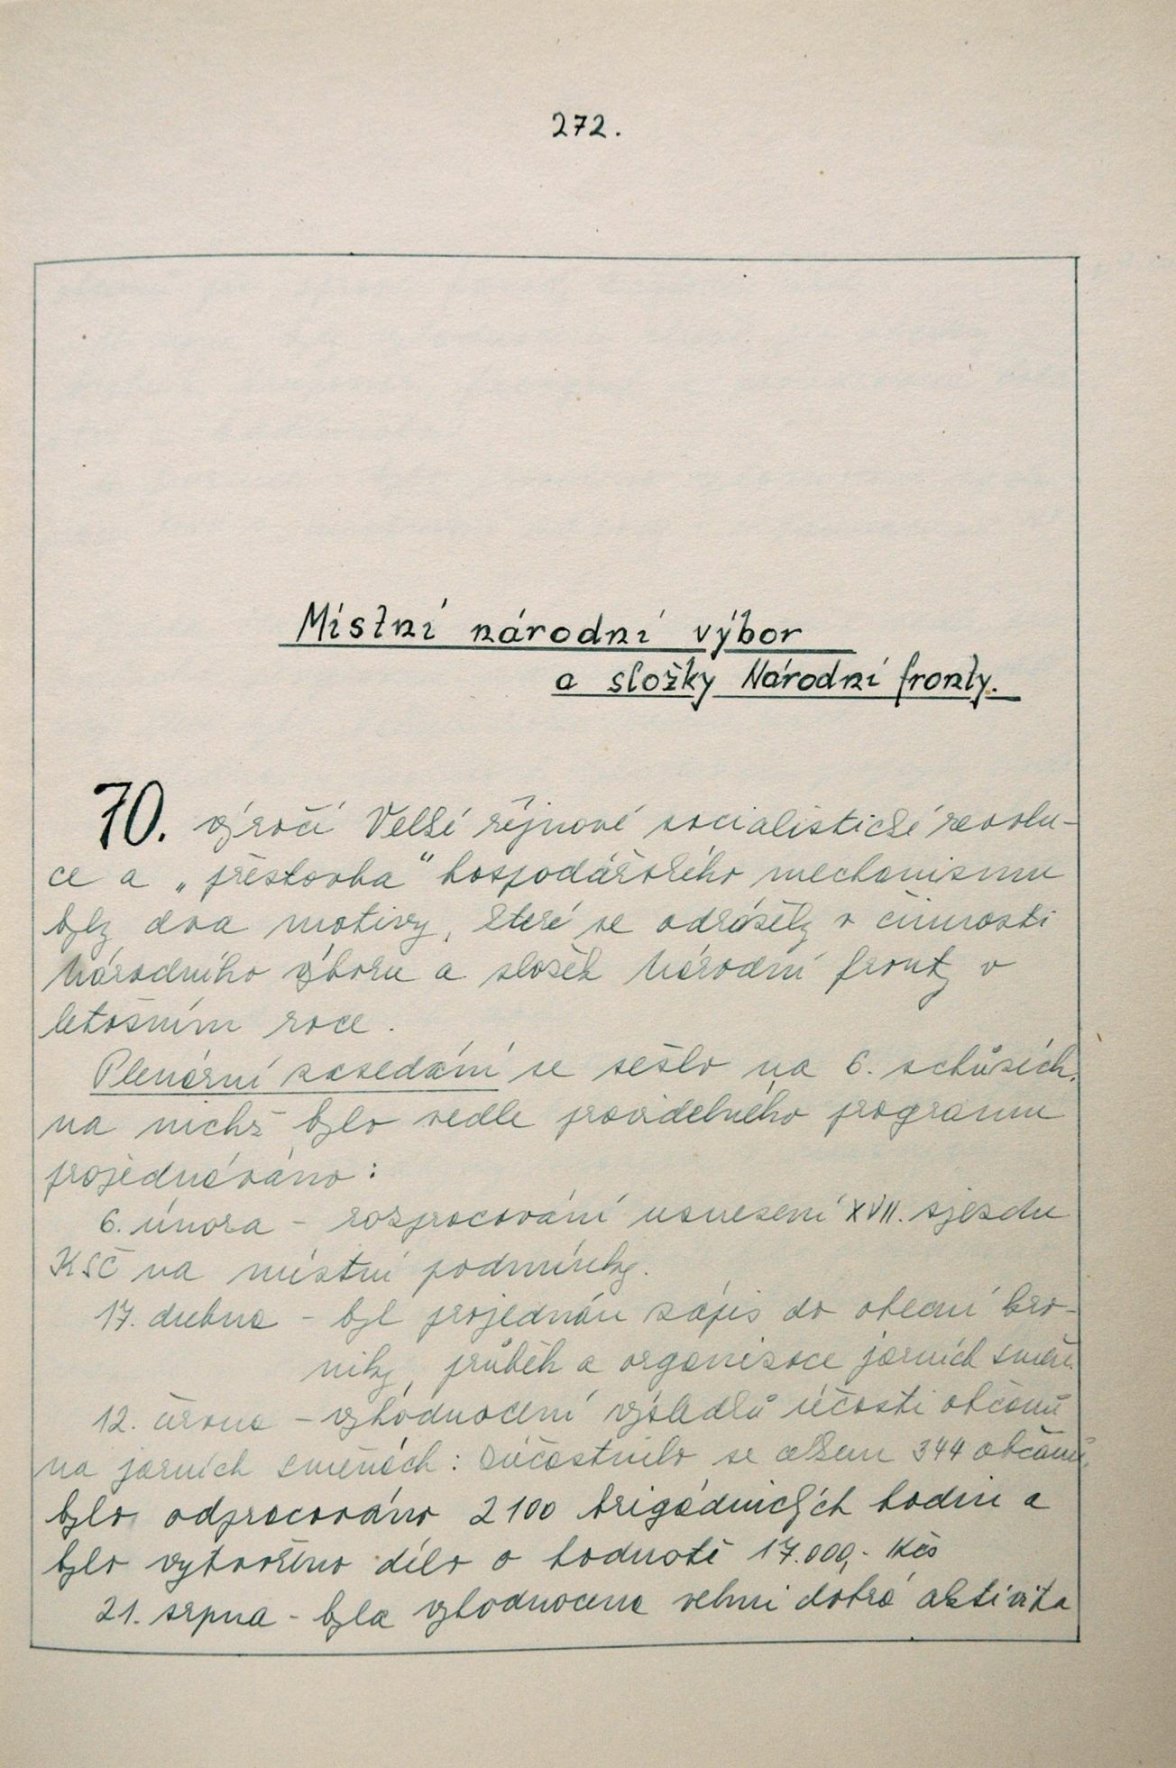 272.
Místní národní výbor
a složky Národní fronty.
70. výročí Velké říjnové socialistické revolu-
ce a „přestavba“ hospodářského mechanismu
byly dva motivy, které se odrážely v činnosti
Národního výboru a složek Národní fronty v
letošním roce.
Plenární zasedání se sešlo na 6. schůzích,
na nichž bylo vedle pravidelného programu
projednáváno:
6. února - rozpracování usnesení XVII. sjezdu
KSČ na místní podmínky.
17. dubna - byl projednán zápis do obecní kro-
niky, průběh a organizace jarních směn.
12. června - vyhodnocení výsledků účasti občanů
na jarních směnách: zúčastnilo se celkem 344 občanů,
bylo odpracováno 2100 brigádnických hodin a
bylo vytvořeno dílo o hodnotě 17.000,- Kčs
21. srpna - byla vyhodnocena velmi dobrá aktivita